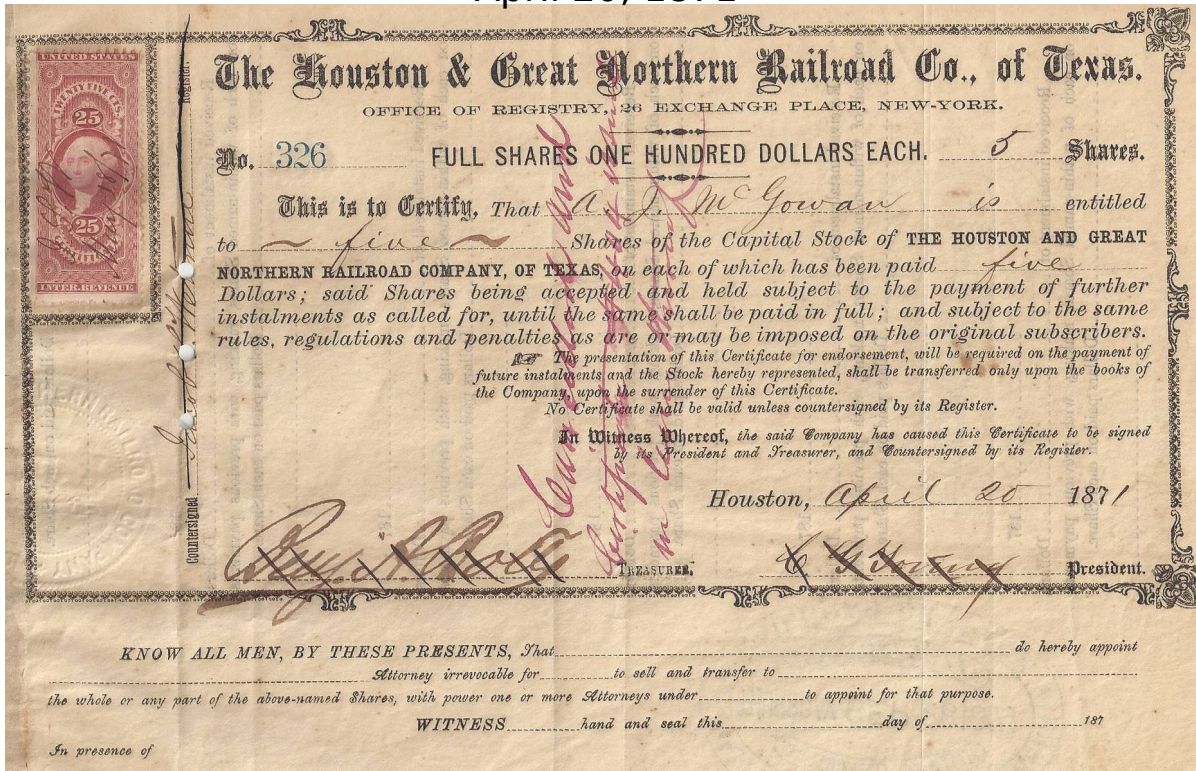 April 20, 1871
The Houston & Great Northern Railroad Co., of Texas.
OFFICE OF REGISTRY, 26 EXCHANGE PLACE, NEW-YORK.
No. 326 FULL SHARES ONE HUNDRED DOLLARS EACH. 5 Shares.
This is to Certify, That A. J. McGowan is entitled
to five Shares of the Capital Stock of THE HOUSTON AND GREAT
NORTHERN RAILROAD COMPANY, OF TEXAS, on each of which has been paid five
Dollars; said Shares being accepted and held subject to the payment of further
instalments as called for, until the same shall be paid in full; and subject to the same
rules, regulations and penalties as are or may be imposed on the original subscribers.
The presentation of this Certificate for endorsement, will be required on the payment of
future instalments and the Stock hereby represented, shall be transferred only upon the books of
the Company, upon the surrender of this Certificate.
No Certificate shall be valid unless countersigned by its Register.
In Witness Whereof, the said Company has caused this Certificate to be signed
by its President and Treasurer, and Countersigned by its Register.
Houston, April 20 1871
TREASURER,
C G Young President.
Countersigned
Register.
UNITED STATES
TWENTY FIVE CTS.
25
25
INTER. REVENUE
Cancelled and
KNOW ALL MEN, BY THESE PRESENTS, That do hereby appoint
Attorney irrevocable for to sell and transfer to
the whole or any part of the above-named Shares, with power one or more Attorneys under to appoint for that purpose.
WITNESS hand and seal this day of 187
In presence of